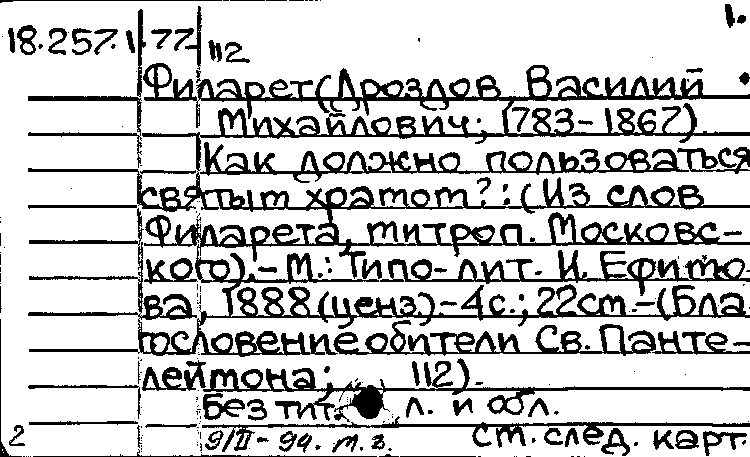 1.
18.257.1.77 112
Филарет (Дроздов, Василий
Михайлович; 1783-1867).
Как должно пользоваться
святым храмом? : (Из слов
Филарета, митроп. Московс-
кого). - М.: Типо-лит. И. Ефимо
ва, 1888 (ценз.) - 4 с.; 22 см. - (Бла
гословение обители Св. Панте-
леймона; 112).
Без тит. л. и обл.
2 9/II-94. м.з. см. след. карт.